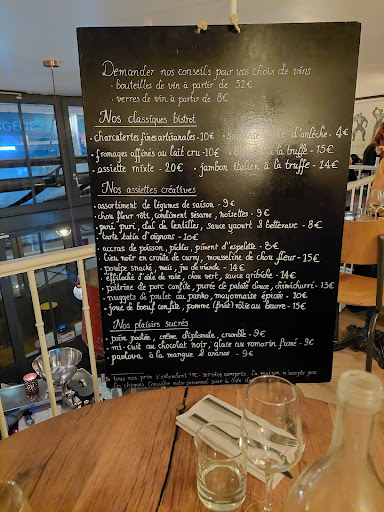 Demander nos conseils pour vos choix de vins
• bouteilles de vin à partir de 32€
• verres de vin à partir de 8€
Nos classiques bistrot
• charcuteries fines artisanales - 10€ • d'ardèche - 4€
• fromages affinés au lait cru - 10€ • la truffe - 15€
• assiette mixte - 20€ • jambon italien à la truffe - 14€
Nos assiettes créatives
assortiment de légumes de saison - 9€
chou fleur rôti, condiment sésame, noisettes - 9€
puri puri, dal de lentilles, sauce yaourt & betterave - 8€
tarte tatin d'oignons - 10€
accras de poisson, pickles, piment d'espelette - 8€
lieu noir en croûte de curry, mousseline de chou fleur - 15€
poulpe snacké, maïs, jus de viande - 14€
effilochée d'aile de raie, chou vert, sauce gribiche - 14€
poitrine de porc confite, purée de patate douce, chimichurri - 13€
nuggets de poulet au panko, mayonnaise épicée - 10€
joue de boeuf confite, pomme (fruit) rôtie au beurre - 15€
Nos plaisirs sucrés
• poire pochée, crème diplomate, crumble - 9€
• mi-cuit au chocolat noir, glace au romarin fumé - 9€
• pavlova à la mangue & ananas - 9€
tous nos prix s'entendent TTC - service compris. La maison n'accepte pas
les chèques. Consulter notre personnel pour la liste